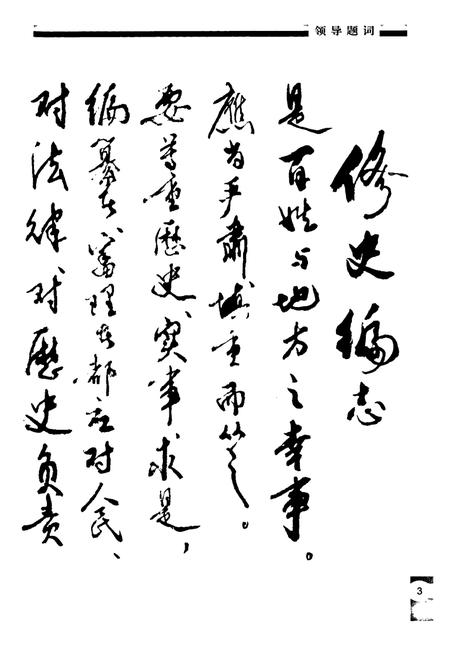 领导题词
修史编志
是百姓与地方之幸事。
应当严肃慎重而为之。
要尊重历史、实事求是,
编纂者、审理者都应对人民、
对法律、对历史负责
3